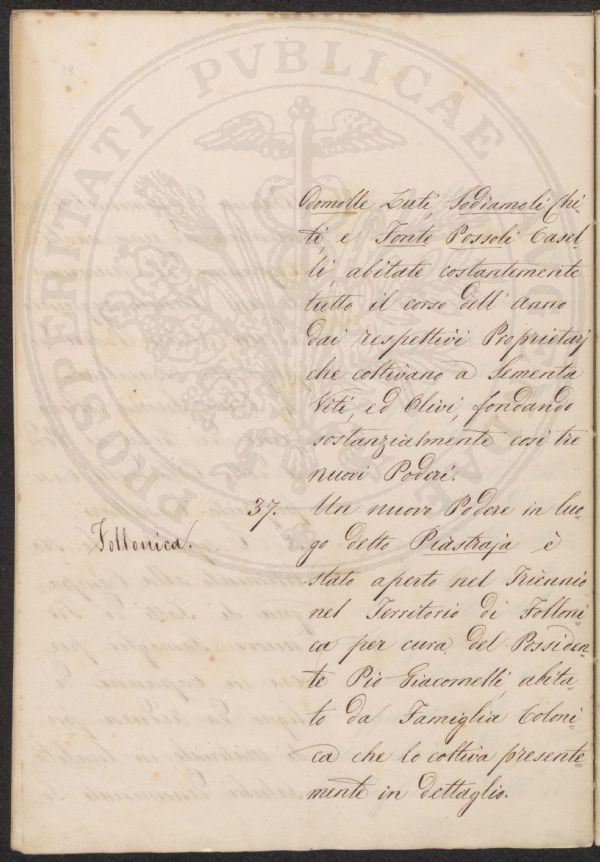 PROSPERITATI PVBLICAE
Odomolle Luti, Sodiamoli Chi-
ti, e Fonte Possoli Casel-
li, abitate costantemente
tutto il corso dell'anno
dai respettivi Proprietarj
che coltivano a Sementa
Viti, ed Olivi, fondando
sostanzialmente così tre
nuovi Poderi.
Follonica.
37. Un nuovo Podere in luo-
go detto Piastraja è
stato aperto nel Triennio
nel Territorio di Folloni-
ca per cura del Possiden-
te Pio Giacomelli, abita-
to da Famiglia Coloni-
ca che lo coltiva presente-
mente in dettaglio.